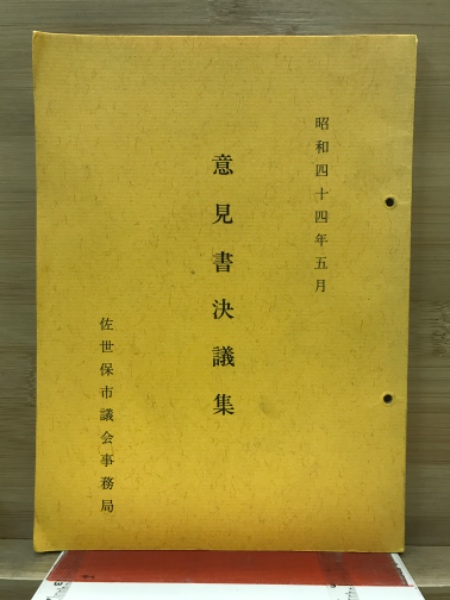 昭和四十四年五月
意見書決議集
佐世保市議会事務局